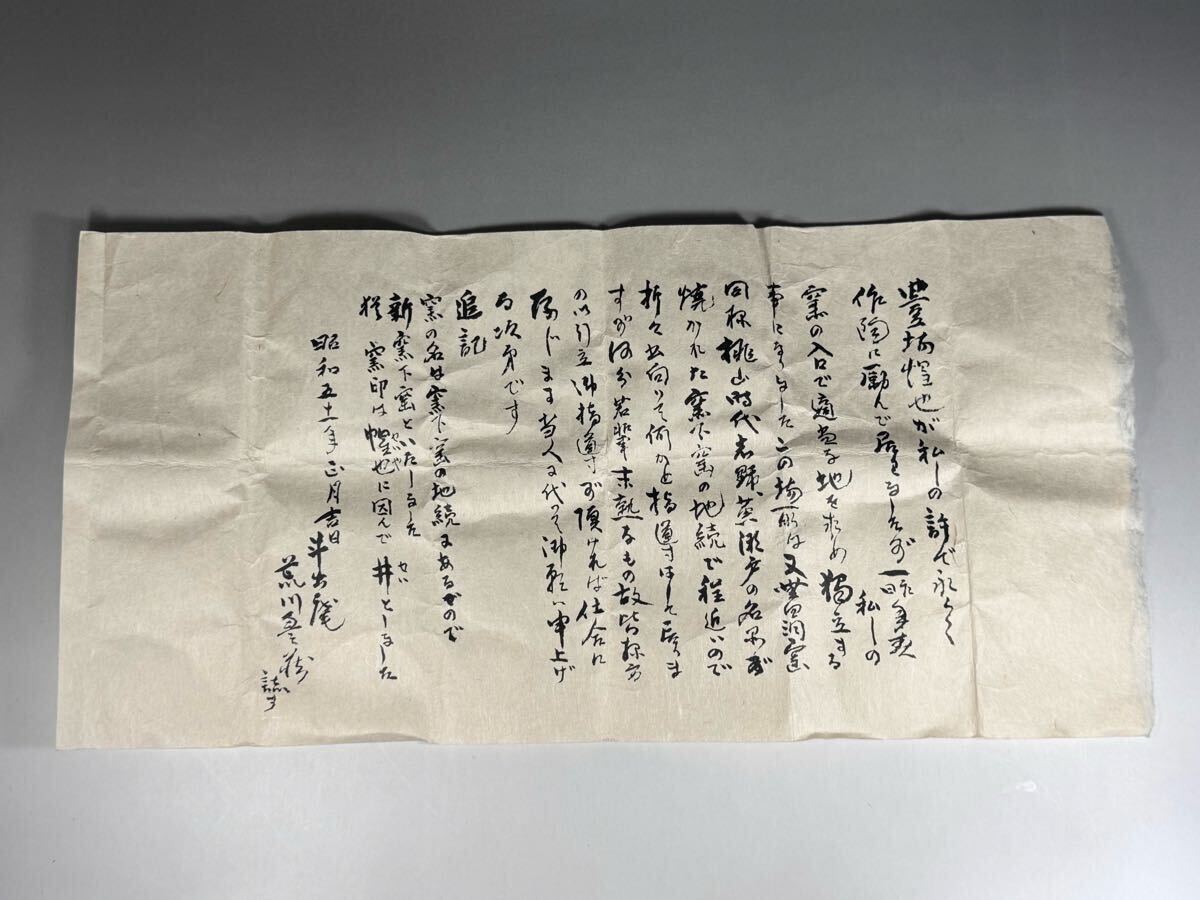 豊場惺也が私しの許で永らく
作陶に励んで居りましたが 一昨年来 私しの
窯の入口で適当な地を求め 獨立する
事になりました この場所は又無田洞窯
同様桃山時代志野、黄瀬戸の名品が
焼かれた窯下窯の地続で程近いので
折々出向いて何かと指導はして居りま
すが何分若輩未熟なもの故皆様方
の御引立御指導が頂ければ仕合に
存じます 当人に代って御願い申上げ
る次第です
追記
窯の名は窯下窯の地続にあるので
新窯下窯といたしました
猶 窯印は惺也に因んで 井としました
せいや
せい
昭和五十一年正月吉日
斗出庵
荒川豊蔵
誌す